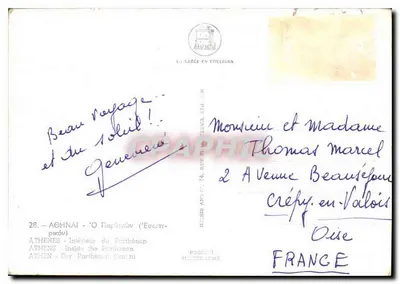 Beau voyage..
et du soleil!..
Geneviève
Monsieur et Madame
Thomas Marcel
2 Avenue Beauséjour
Crépy-en-Valois
Oise
FRANCE
28. - ΑΘΗΝΑΙ - Ὁ Παρθενὼν (Ἐσωτε-
ρικόν)
ATHENES - Intérieur du Parthénon
ATHENS - Inside the Parthenon
ATHEN - Der Parthenon